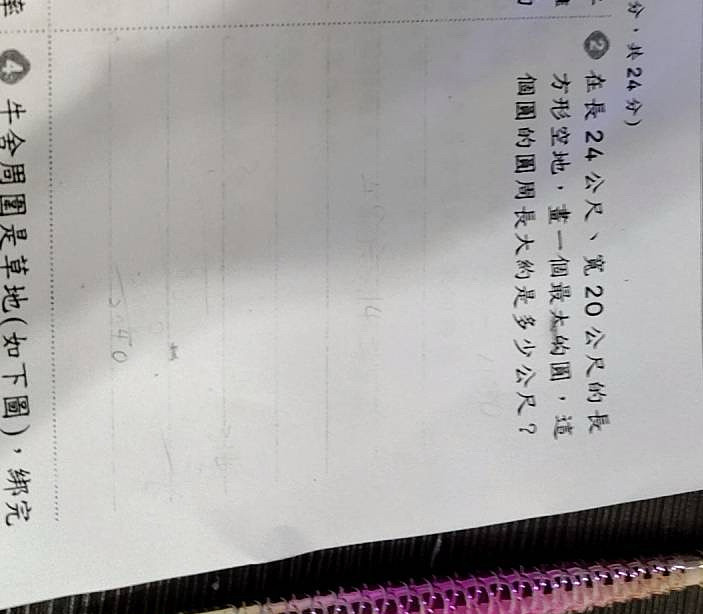 分，共24分）
❷ 在長24公尺、寬20公尺的長
方形空地，畫一個最大的圓，這
個圓的圓周長大約是多少公尺？
❹ 牛舍周圍是草地(如下圖)，綁完